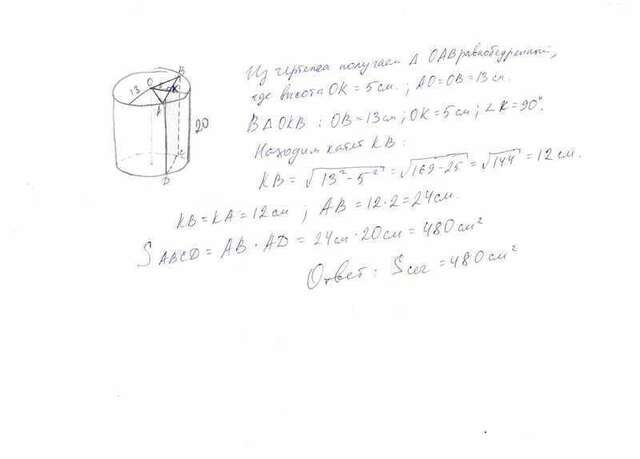 Из чертежа получаем Δ OAB равнобедренный,
где высота OK = 5 см. ; AO = OB = 13 см.
В Δ OKB : OB = 13 см ; OK = 5 см ; ∠K = 90°.
Находим катет KB :
KB = √13² - 5² = √169 - 25 = √144 = 12 см.
KB = KA = 12 см ; AB = 12 · 2 = 24 см.
S ABCD = AB · AD = 24 см · 20 см = 480 см²
Ответ : S сег = 480 см²
B
O
13
K
A
20
C
D